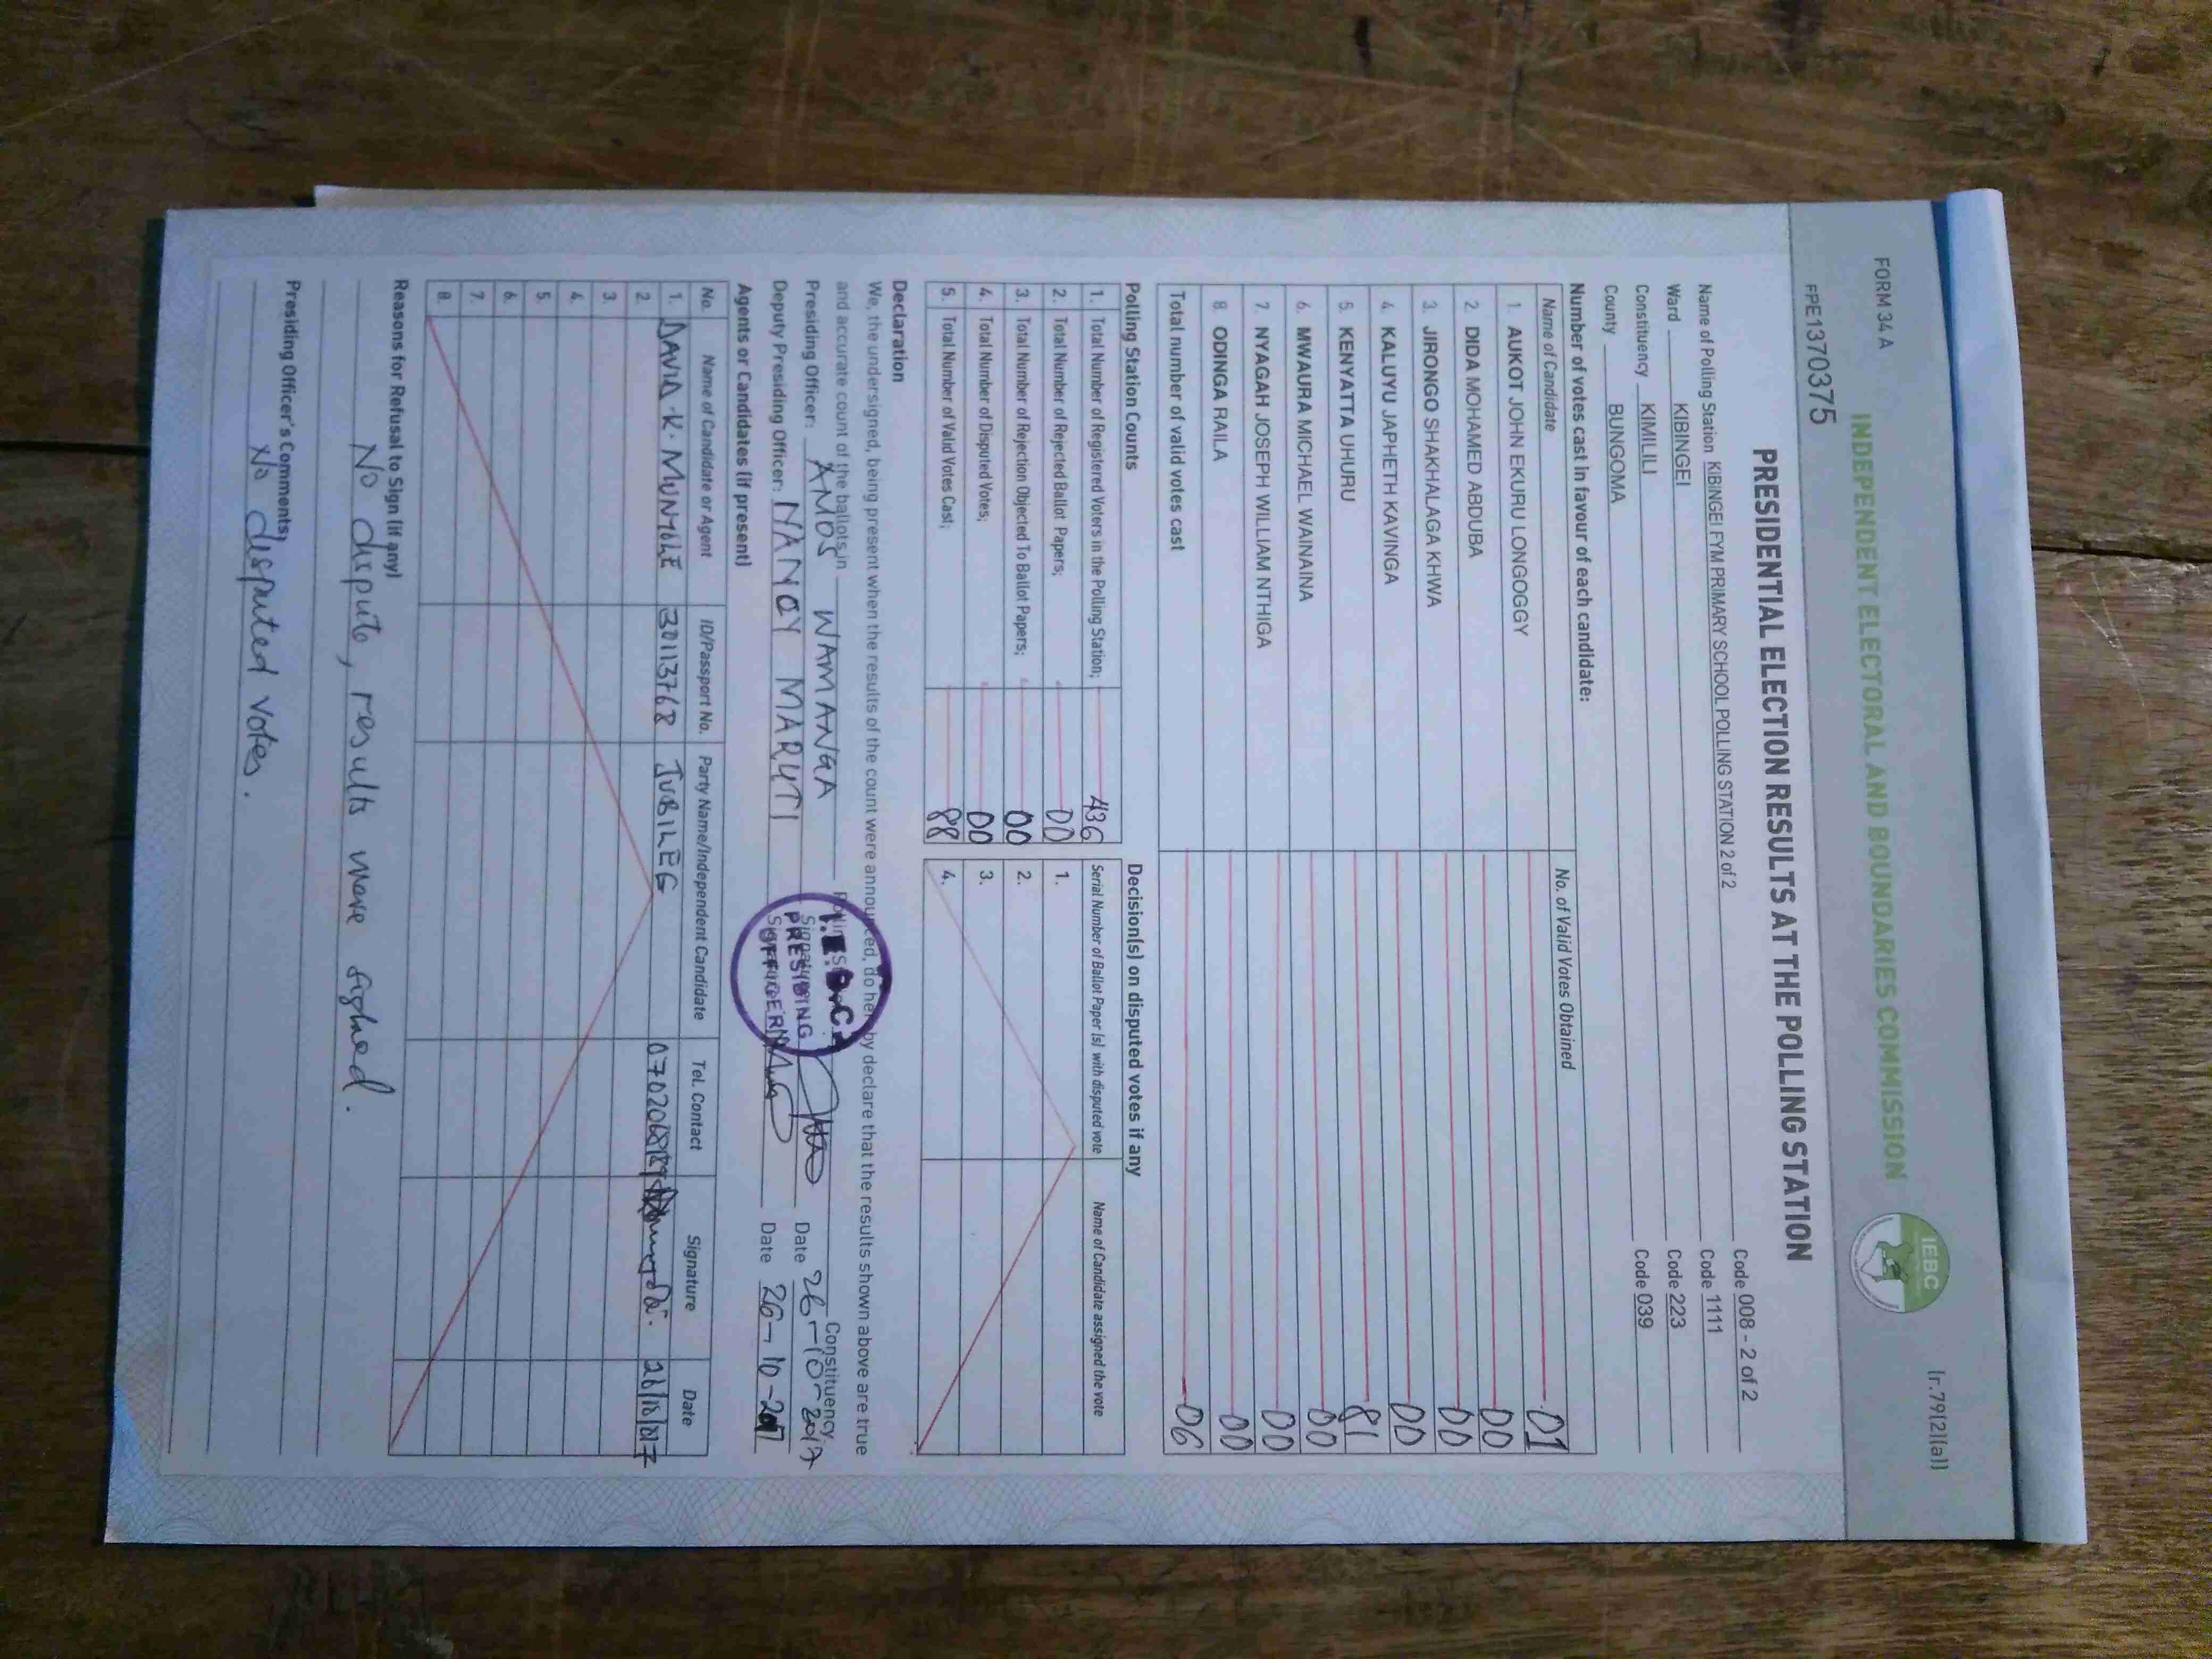 FORM 34 A
[r.79(2)(a)]
INDEPENDENT ELECTORAL AND BOUNDARIES COMMISSION
IEBC
FPE1370375
PRESIDENTIAL ELECTION RESULTS AT THE POLLING STATION
Name of Polling Station KIBINGEI FYM PRIMARY SCHOOL POLLING STATION 2 of 2 Code 008 - 2 of 2
Ward KIBINGEI Code 1111
Constituency KIMILILI Code 223
County BUNGOMA Code 039
Number of votes cast in favour of each candidate:
Name of Candidate No. of Valid Votes Obtained
1. AUKOT JOHN EKURU LONGOGGY 01
2. DIDA MOHAMED ABDUBA 00
3. JIRONGO SHAKHALAGA KHWA 00
4. KALUYU JAPHETH KAVINGA 00
5. KENYATTA UHURU 81
6. MWAURA MICHAEL WAINAINA 00
7. NYAGAH JOSEPH WILLIAM NTHIGA 00
8. ODINGA RAILA 00
Total number of valid votes cast 06
Polling Station Counts
1. Total Number of Registered Voters in the Polling Station; 436
2. Total Number of Rejected Ballot Papers; 00
3. Total Number of Rejection Objected To Ballot Papers; 00
4. Total Number of Disputed Votes; 00
5. Total Number of Valid Votes Cast; 88
Decision(s) on disputed votes if any
Serial Number of Ballot Paper (s) with disputed vote Name of Candidate assigned the vote
1.
2.
3.
4.
Declaration
We, the undersigned, being present when the results of the count were announced, do hereby declare that the results shown above are true
and accurate count of the ballots in Polling Constituency.
Presiding Officer: AMOS WAMANGA Signature Date 26-10-2017
Deputy Presiding Officer: NANCY MARUTI Signature Date 26-10-2017
I.E.B.C
PRESIDING
OFFICER
Agents or Candidates (if present)
No. Name of Candidate or Agent ID/Passport No. Party Name/Independent Candidate Tel. Contact Signature Date
1. DAVID K. MUNYOLE 30113768 JUBILEE
2.
3.
4.
5.
6.
7.
8.
Reasons for Refusal to Sign (if any)
No dispute, results were signed.
Presiding Officer's Comments
No disputed votes.